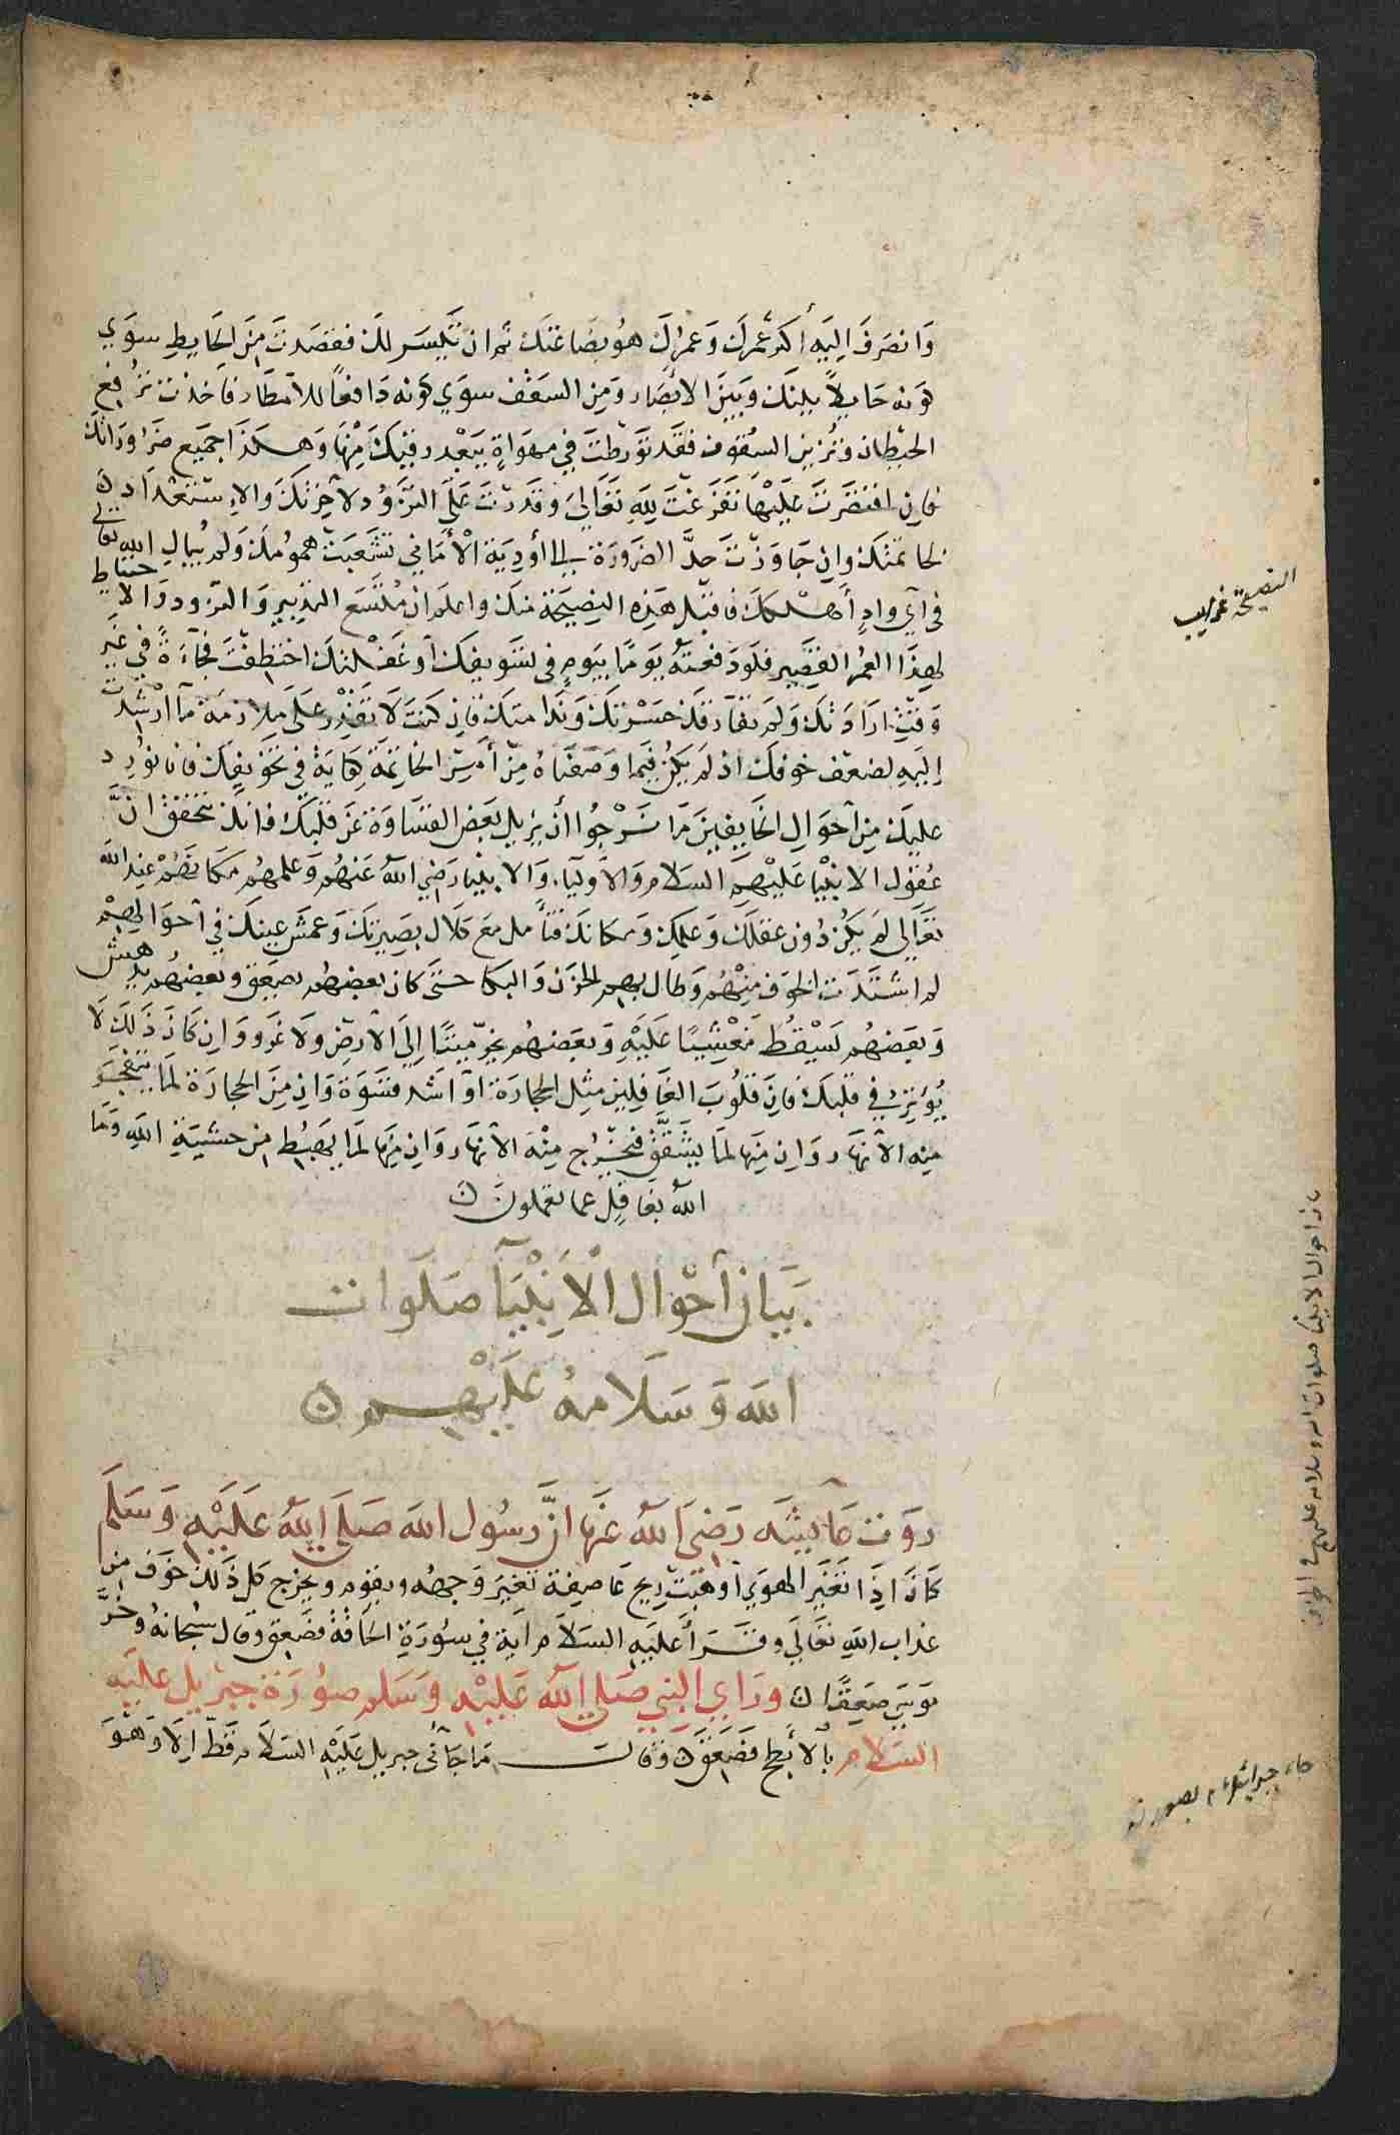 وَانصَرَفَ اِلَيهِ أكثر عُمرك وَعمرُك هُو بضَاعَتك ثم ان تَيَسَر لك فقصَدتَ مِنَ الحَايطِ سوَي
كونه حَايلاً بينَك وَبَينَ الابصَار وَمِن السَقف سوَي كونه دَافعًا للامطَار فاخذت تَرفع
الحيطان وتُزين السُقوف فقَد تورطتَ في مهوَاةٍ يَبعُد رقيك مِنهَا وَهكذا جمَيع ضرُوراتك
فان اقتصَرتَ عَليهَا تَفَرغتَ لِلهِ تَعَالىَ وَقدرتَ عَلَى التزَوُد لآخِرتكَ وَالاِستعدَاد
لخاتمتك وان جَاوَزتَ حدَّ الضرُورة الى أودِيَة الأمَاني تشعَبت همومُك وَلم يُبالِ الله تعَالي
في اَي وادٍ أهلكك فاقبل هَذِه النصِيحَة منك واعلم ان مُتسَع التدبيرِ وَالتزود وَالاحتيَاط
لهذَا العُمر القصَير فلو دَفعتَهُ يَومًا بيَومٍ في تسَويفك اَو غَفلتك اختطِفتَ فجاءَةً في غَير
وَقتِ ارَادَتك وَلم تفَارقك حسرتك وَندامتك فان كنتَ لَا تقدِر عَلَى ملازمَة مَا اُرشدتَ
إليهِ لضعف خوفك اذ لم يَكن فيمَا وَصَفنَاهُ مِن أمر الخاتمَة كفاية في تخويفك فانا نورد
عليك مِن اَحوَالِ الخَايفينَ مَا نَرجُوا أن يزيل بَعض القسَاوة عَن قلبَك فانك تتحقق انَّ
عُقول الانبيا عَليهِم السَلام وَالاَوليَاء وَالانبيا رَضي اللهُ عَنهُم وَعلمهُم وَمكانهُم عِند الله
تعَالى لم يَكن دُون عَقلك وَعلمك وَمكانك فتأمل مع كلال بصِيرتك وَعمَش عينك في اَحوَالهم
لم اشتدَت الخوف منهُم وَطال بهم الحزَن وَالبكا حتَى كان بعضهُم يصعَق وبعضهُم يدهش
وَبعَضهُم يَسقُط مَغشِيًا عَليهِ وَبعَضهُم يخر ميتًا اِلَى الاَرض ولَا غَرو وَاِن كانَ ذَلك لَا
يُوثر في قلبَك فانَ قلُوبَ الغَافلين مِثل الحجارَة اَو اَشد قسَوة وَان مِنَ الحجارَة لمَا يَتَفجر
مِنه الاَنهَار وَان مِنَها لمَا يشَّقق فيخرُج مِنهُ الاَنهَار وَان مِنهَا لمَا يَهبُط مِن خشيَةِ اللهِ وَمَا
اللهُ بغافِل عما تعملون ن
بَيَان أحْوَال الْأنْبيَآ صَلَوات
الله وَسَلَامهُ عَلَيْهِم ن
رَوَت عَآيشَة رَضيَ اللهُ عَنهَا انَّ رسُول الله صَلى اللهُ عَلَيْهِ وَسَلم
كانَ اِذَا تَغَيَر الهوَي اَو هَبّت ريح عَاصِفة تغيَر وَجههُ ويقوم ويخرج كل ذَلك خوَف من
عذاب اللهِ تعَالَى وقرَأ عَليَهِ السَلاَم ايَة في سُورَةِ الحَاقة فصَعِق وقال سُبحانهُ وخَرَّ
مُوسَى صَعِقًا ن ورَاي النبي صَلى اللهُ عَليْهِ وَسَلم صُورَة جبريل عليَه
السَلام بالأبطح فصَعِق ن وَقال مَا جآني جبريل عَليْه السَلام قَطّ اِلَا وَهُوَ
النصيحة غرايب
بيان احوال الانبيا صلوات الله وسلامه عليهم في الخوف